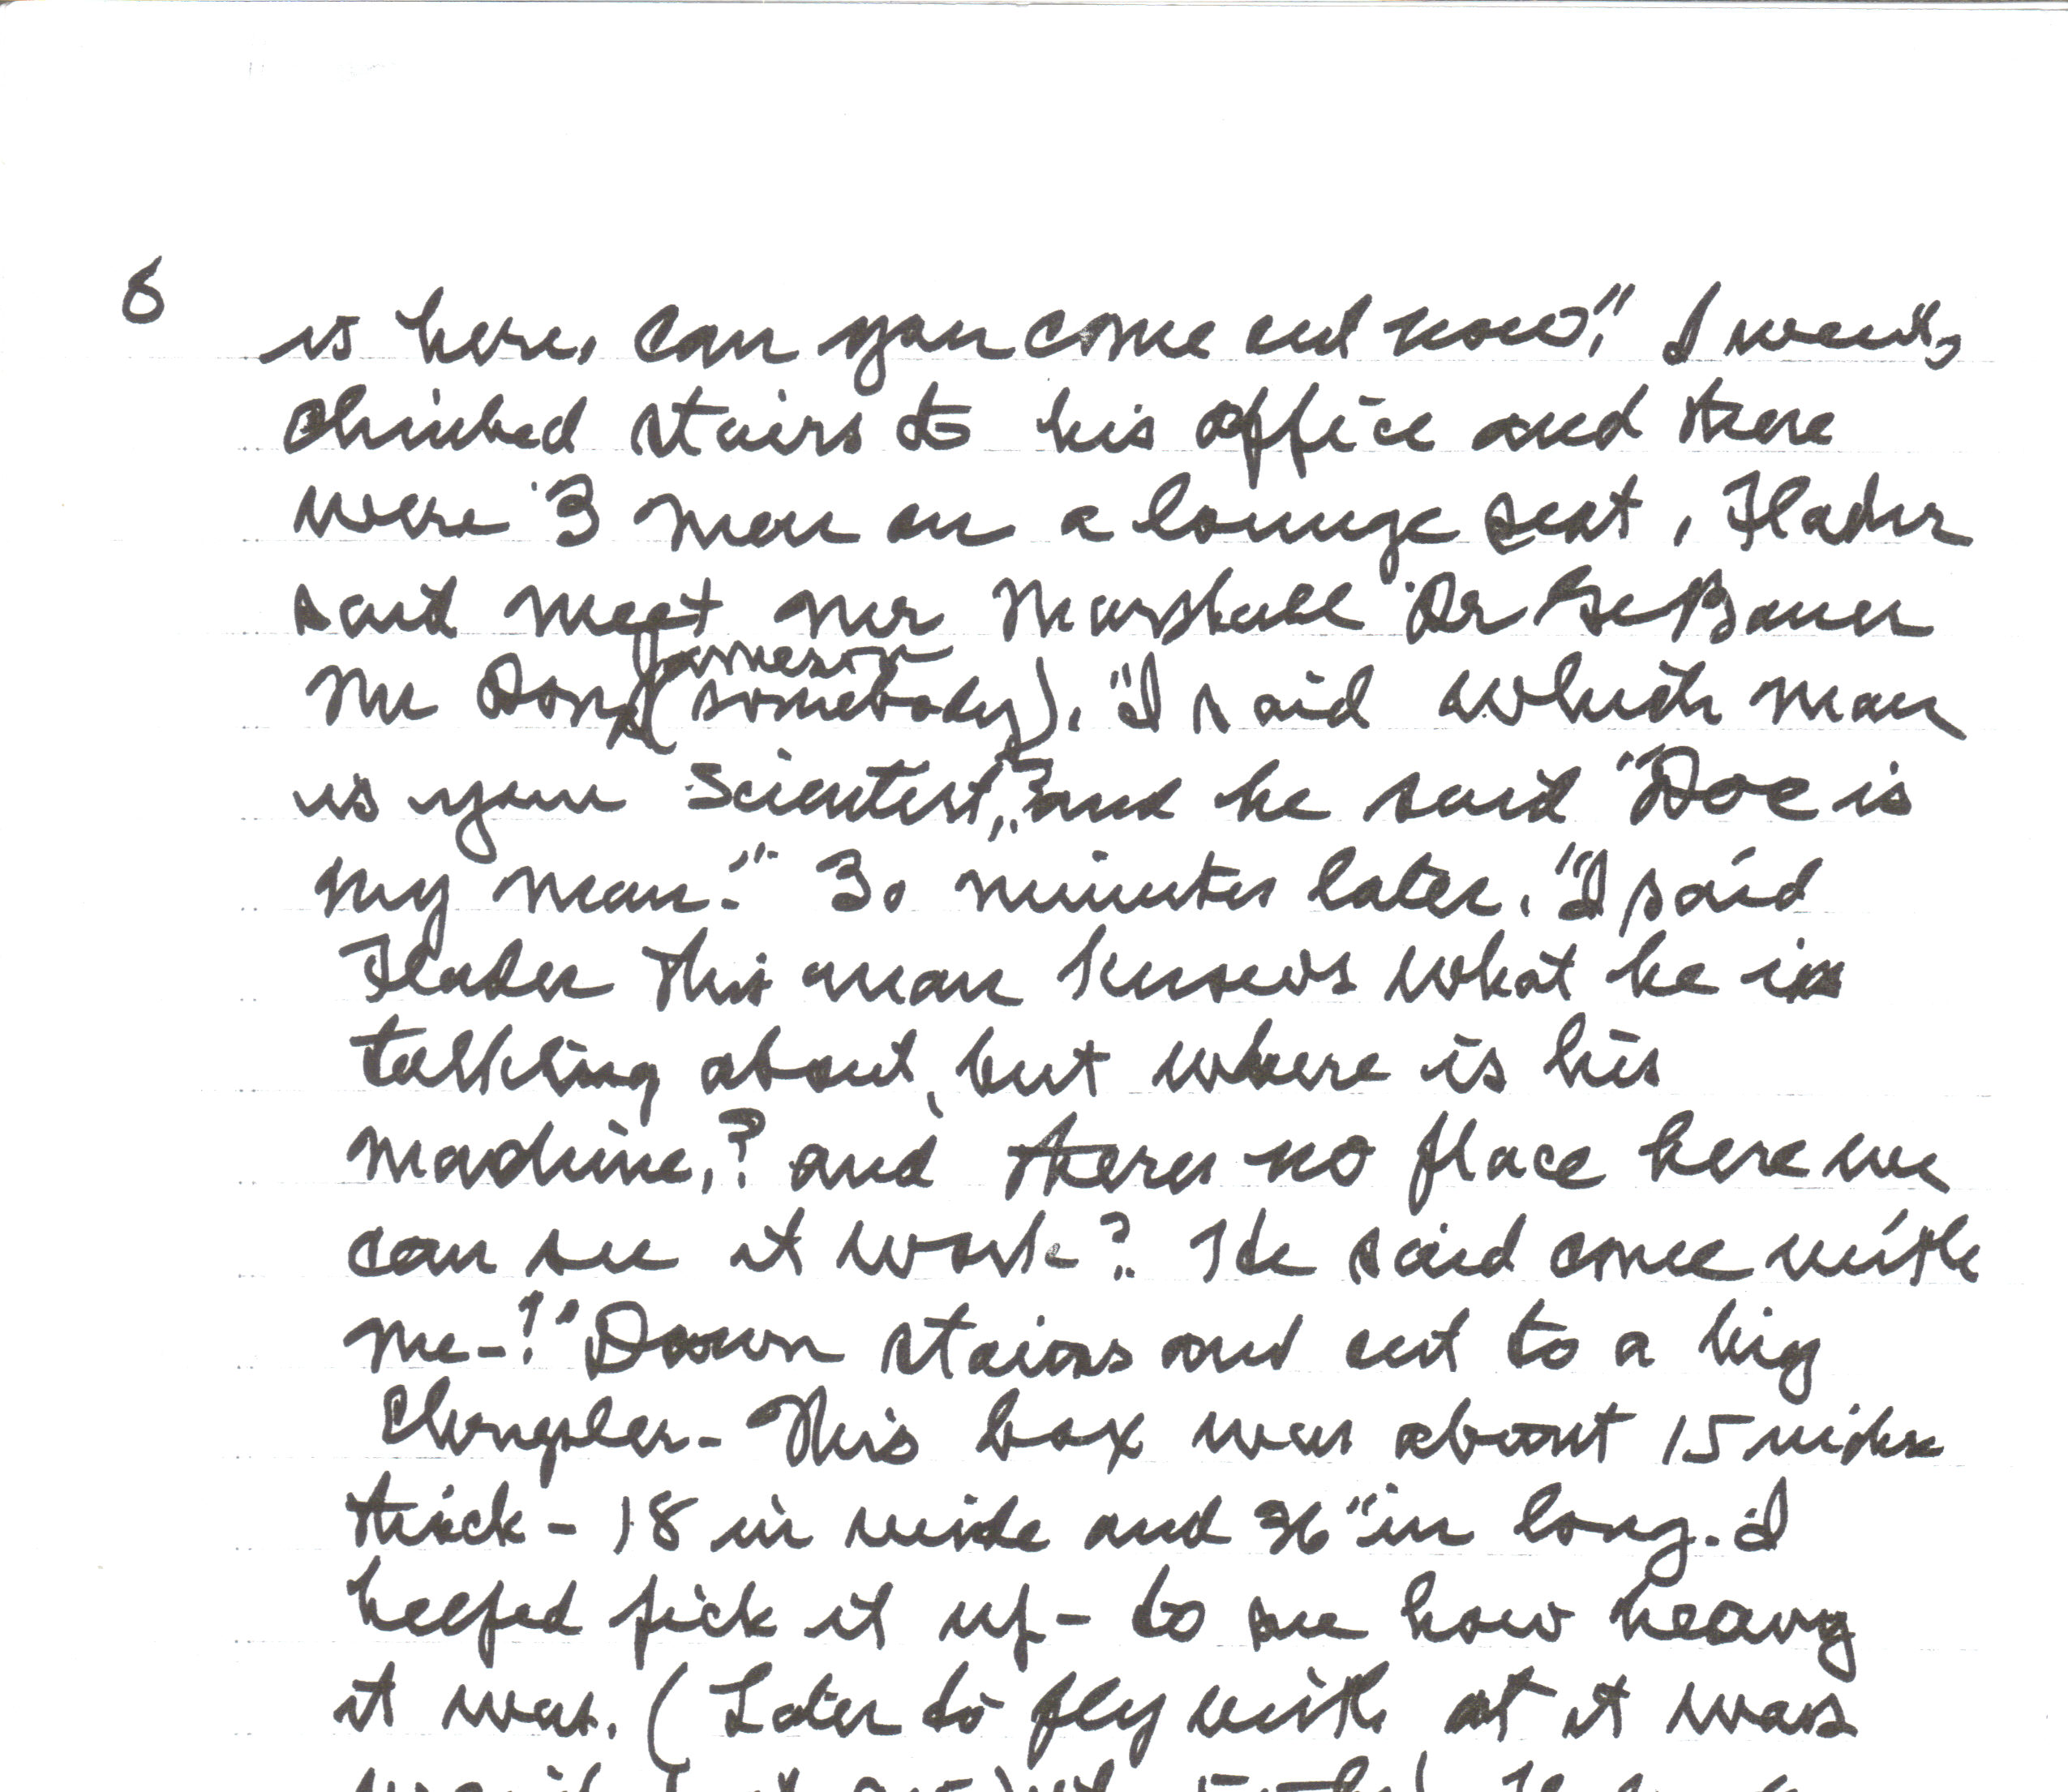 8
is here, can you come out now." I went,
climbed stairs to his office and there
were 3 men on a lounge seat, Flader
said meet Mr Marshall Dr GeBauer
Jameson
Mr Don (somebody). "I said which man
is your scientist,"? and he said "Doc is
my man." 30 minutes later, "I said
Flader this man knows what he is
talking about, but where is his
machine,? and theres no place here we
can see it work? He said come with
me-!" Down stairs and out to a big
Chrysler - This box was about 15 inches
thick - 18 in wide and 36" in long. I
helped pick it up - to see how heavy
it was. (Later to fly with it it was